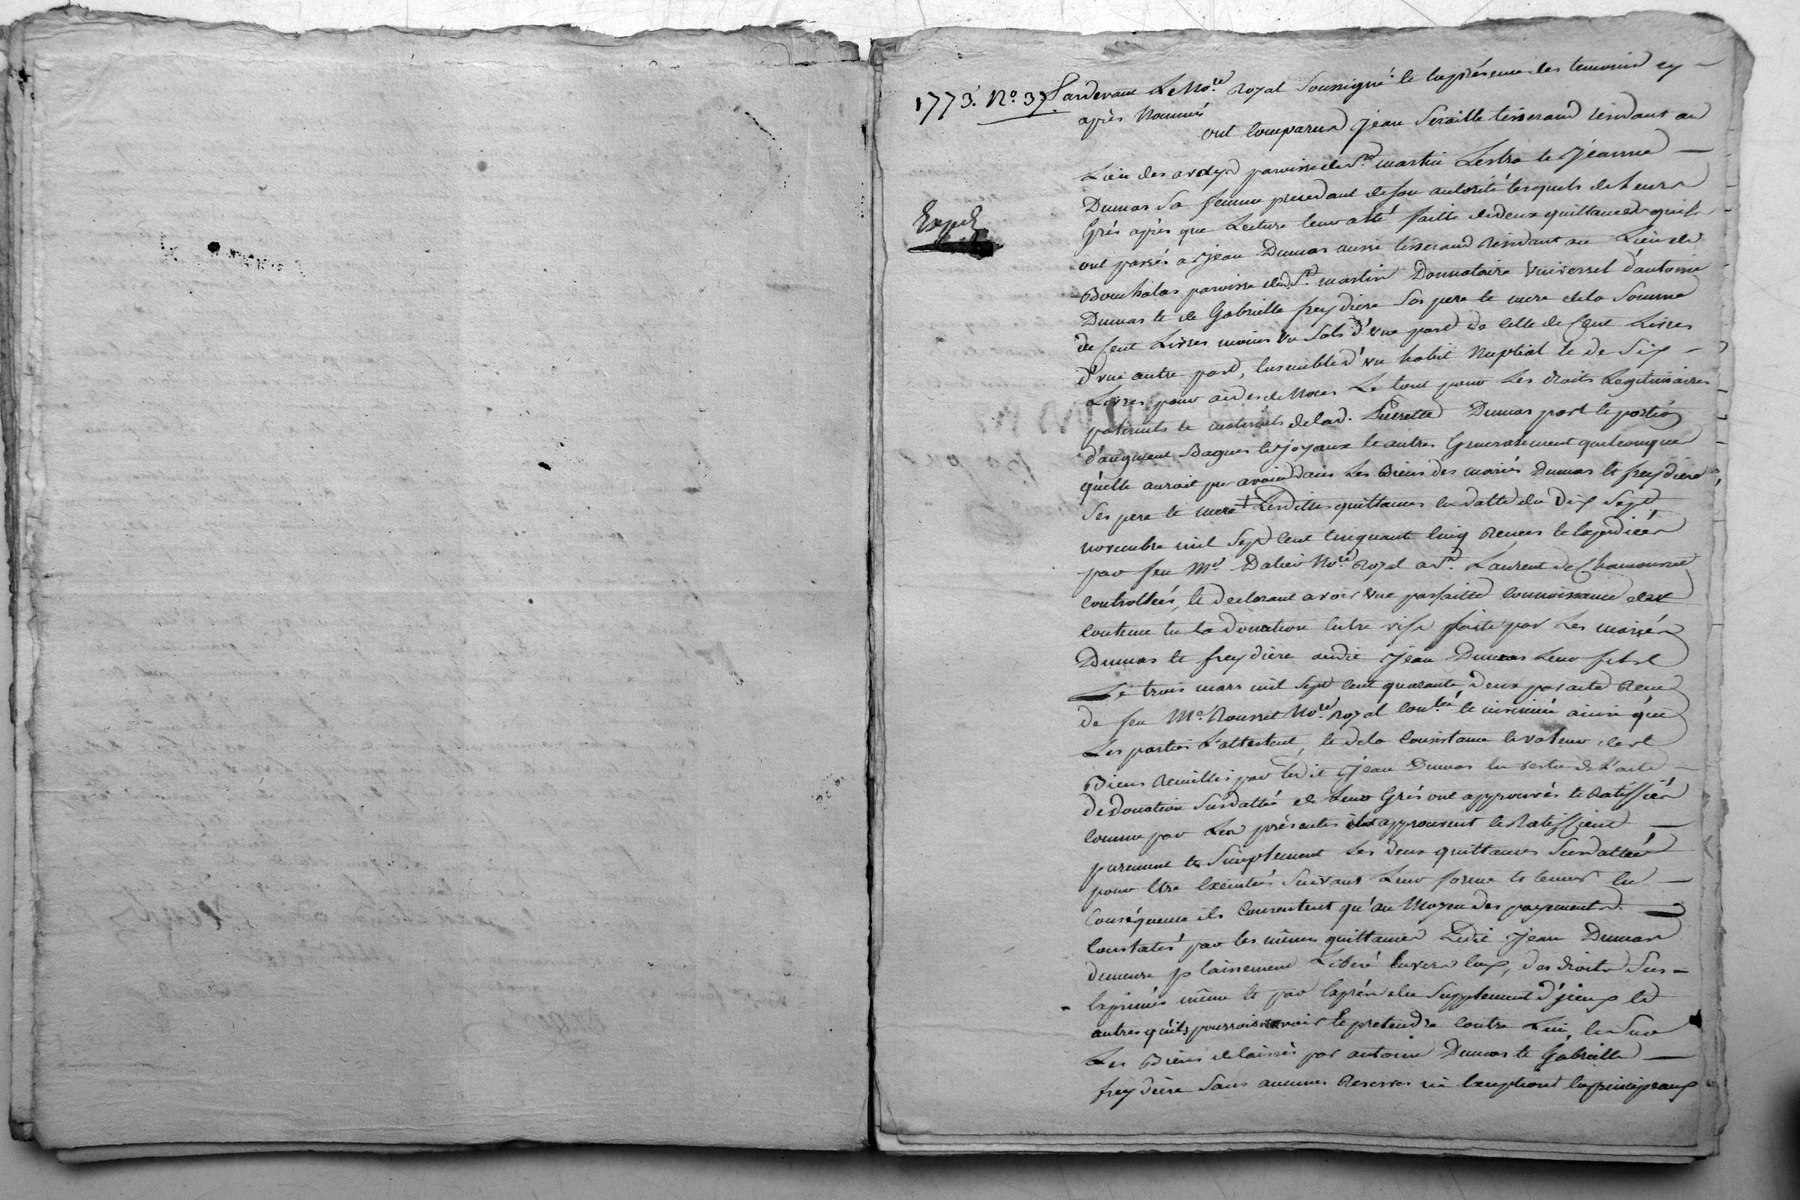 1773. N.º 37 Pardevant Le No.re Royal Soussigné & En présence des temoins cy
après Nommés
ont Comparus Jean Seraille tisserand résidant au
Expé
Lieu des paroisse de St. martin Lestra & Jeanne
Dumas Sa femme procedant de son autorité lesquels de Leurs
Grés après que Lecture leur a été faitte de deux quittances qu'ils
ont passés a Jean Dumas aussi tisserand Résidant au Lieu de
paroisse dud. St. martin Donnataire Universel d'antoine
Dumas & de Gabrielle freydiere Ses pere & mere de la Somme
de Cent Livres moins un Sols d'une part de celle de Cent Livres
d'une autre part, Ensemble d'un habit Nuptial & de Six
Livres pour aides de Noces Le tout pour Les droits Legitimaires
paternels & maternels de lad. Dumas part & portion
d'augment Bagues & joyaux & autres Generalement quelconque
qu'elle auroit pu avoir dans Les Biens des mariés Dumas & freydiere
Ses pere & mere Lesdittes quittances en datte du Dix Sept
novembre mil Sept Cent Cinquante Cinq Recues & Expediées
par feu Me. No.re Royal a St. Laurent de Chamousset
Controllées, & declarant avoir une parfaitte Connoissance du
Contenu En la donation Entre vifs faite par Les mariés
Dumas & freydière audit Jean Dumas Leur fils
Le trois mars mil Sept Cent quarante deux par acte Recu
de feu Me. Rousset No.re Royal Con.lée & insinué ainsi que
Les parties L'attestent, & de la Consistance & valeur des
Biens Recuillis par ledit Jean Dumas En vertu de L'acte
de donation Susdatté de Leurs Grés ont approuvés & Ratiffiés
Comme par Les présentes ils approuvent & Ratiffient
purement & Simplement Les deux quittances Susdattés
pour Etre Exécutés Suivant Leur forme & teneur En
Conséquence ils Consentent qu'au Moyen des payements
Constatés par les mêmes quittances Ledit Jean Dumas
demeure plainement Libéré Envers Eux, des droits Sus-
Exprimés même & par Exprés du Supplement d'Iceux &
autres qu'ils pourroient avoir & pretendre Contre Lui, En Sur
Les Biens délaissés par antoine Dumas & Gabrielle
freydière Sans aucunes Reserves ni Exceptions